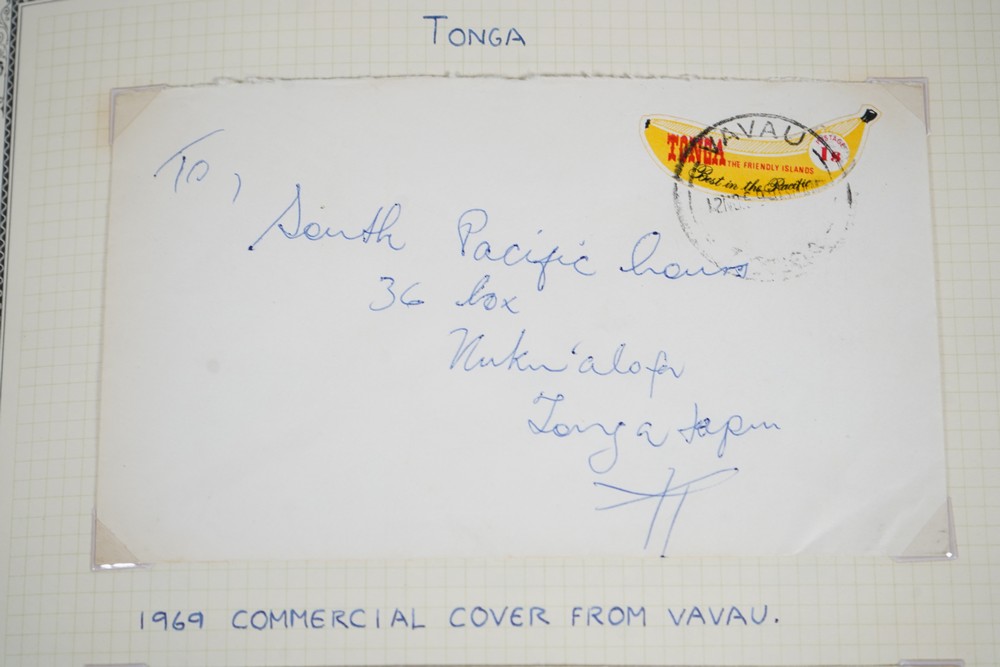 TONGA
VAVAU
TONGA THE FRIENDLY ISLANDS
Best in the Pacific
POSTAGE 1s
To,
South Pacific hours
36 box
Nuku'alofa
Tongatapu
1969 COMMERCIAL COVER FROM VAVAU.